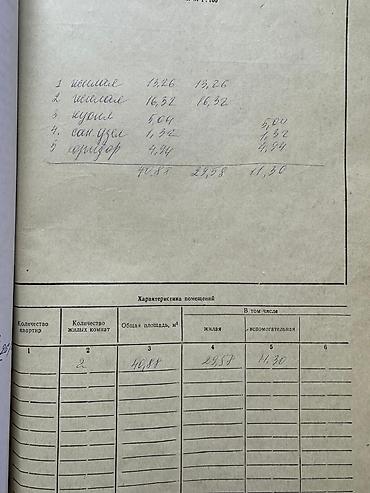 1 жилая 13,26 13,26
2 жилая 16,32 16,32
3 кухня 5,04 5,04
4. сан. узел 1,32 1,32
5 коридор 4,94 4,94
40,88 29,58 11,30
Характеристика помещений
Количество квартир
Количество жилых комнат
Общая площадь, м²
В том числе
жилая
вспомогательная
1 2 3 4 5 6
2 40,88 29,58 11.30